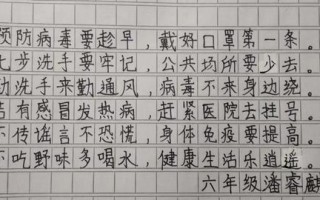 预防病毒要趁早，戴好口罩第一条。
七步洗手要牢记，公共场所要少去。
勤洗手来勤通风，病毒不来身边绕。
若有感冒发热病，赶紧医院去挂号。
不传谣言不恐慌，身体免疫要提高。
不吃野味多喝水，健康生活乐逍遥。
六年级潘睿麒